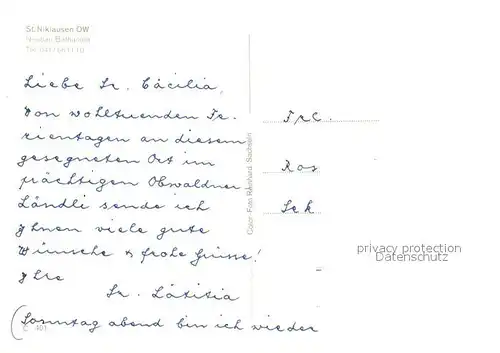 St. Niklausen OW
Neubau Bethanien
Tel. 041/66 11 10
Liebe Sr. Cäcilia,
Von wohltuenden Fe-
rientagen an diesem
gesegneten Ort im
prächtigen Obwaldner
Ländli sende ich
Ihnen viele gute
Wünsche & frohe Grüsse!
Ihre
Sr. Lätitia
(Sonntag abend bin ich wieder
401
Color-Foto Reinhard, Sachseln
Frl.
Ros
Sek
privacy protection
Datenschutz